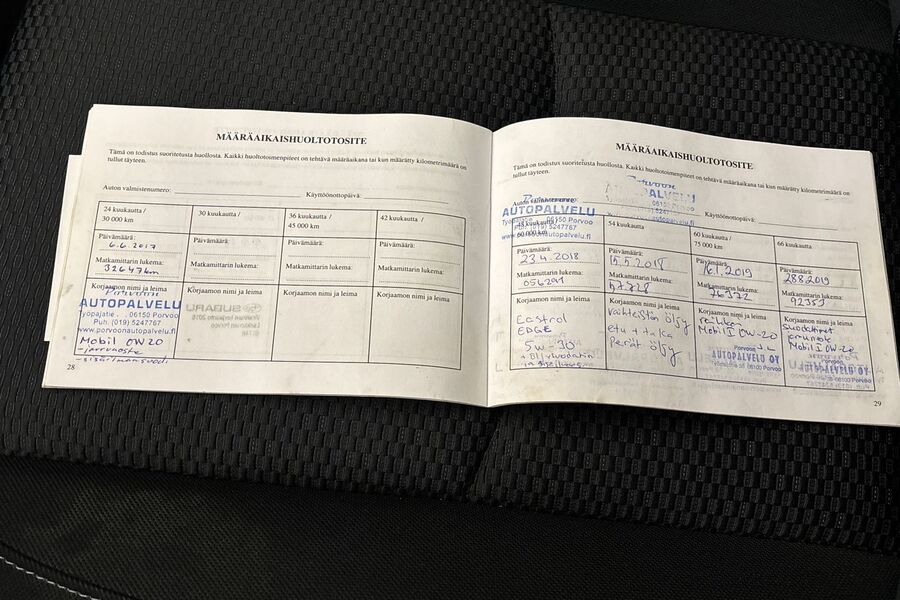 MÄÄRÄAIKAISHUOLTOTOSITE
Tämä on todistus suoritetusta huollosta. Kaikki huoltotoimenpiteet on tehtävä määräaikana tai kun määrätty kilometrimäärä on
tullut täyteen.
Auton valmistenumero: Käyttöönottopäivä:
24 kuukautta /
30 000 km
30 kuukautta /
36 kuukautta /
45 000 km
42 kuukautta /
Päivämäärä:
6.6.2017
Päivämäärä:
Päivämäärä:
Päivämäärä:
Matkamittarin lukema:
32647km
Matkamittarin lukema:
Matkamittarin lukema:
Matkamittarin lukema:
Korjaamon nimi ja leima
Porvoon
AUTOPALVELU
Työpajatie 06150 Porvoo
Puh. (019) 5247767
www.porvoonautopalvelu.fi
Mobil 0W20
Korjaamon nimi ja leima
Korjaamon nimi ja leima
Korjaamon nimi ja leima
28
MÄÄRÄAIKAISHUOLTOTOSITE
Tämä on todistus suoritetusta huollosta. Kaikki huoltotoimenpiteet on tehtävä määräaikana tai kun määrätty kilometrimäärä on
tullut täyteen.
Auton valmistenumero: Käyttöönottopäivä:
Porvoon
AUTOPALVELU
Työpajatie 06150 Porvoo
Puh. (019) 5247767
www.porvoonautopalvelu.fi
48 kuukautta /
60 000 km
54 kuukautta /
60 kuukautta /
75 000 km
66 kuukautta
Päivämäärä:
23.4.2018
Päivämäärä:
15.5.2018
Päivämäärä:
16.1.2019
Päivämäärä:
28.8.2019
Matkamittarin lukema:
056291
Matkamittarin lukema:
57728
Matkamittarin lukema:
76372
Matkamittarin lukema:
92353
Korjaamon nimi ja leima
Castrol
EDGE
5W-30
Korjaamon nimi ja leima
vaihteistön öljy
etu + taka
perät öljy
Korjaamon nimi ja leima
Mobil 1 0W-20
Porvoon
AUTOPALVELU OY
06100 Porvoo
Korjaamon nimi ja leima
suodatinet
Mobil 1 0W-20
Porvoon
AUTOPALVELU OY
06100 Porvoo
29